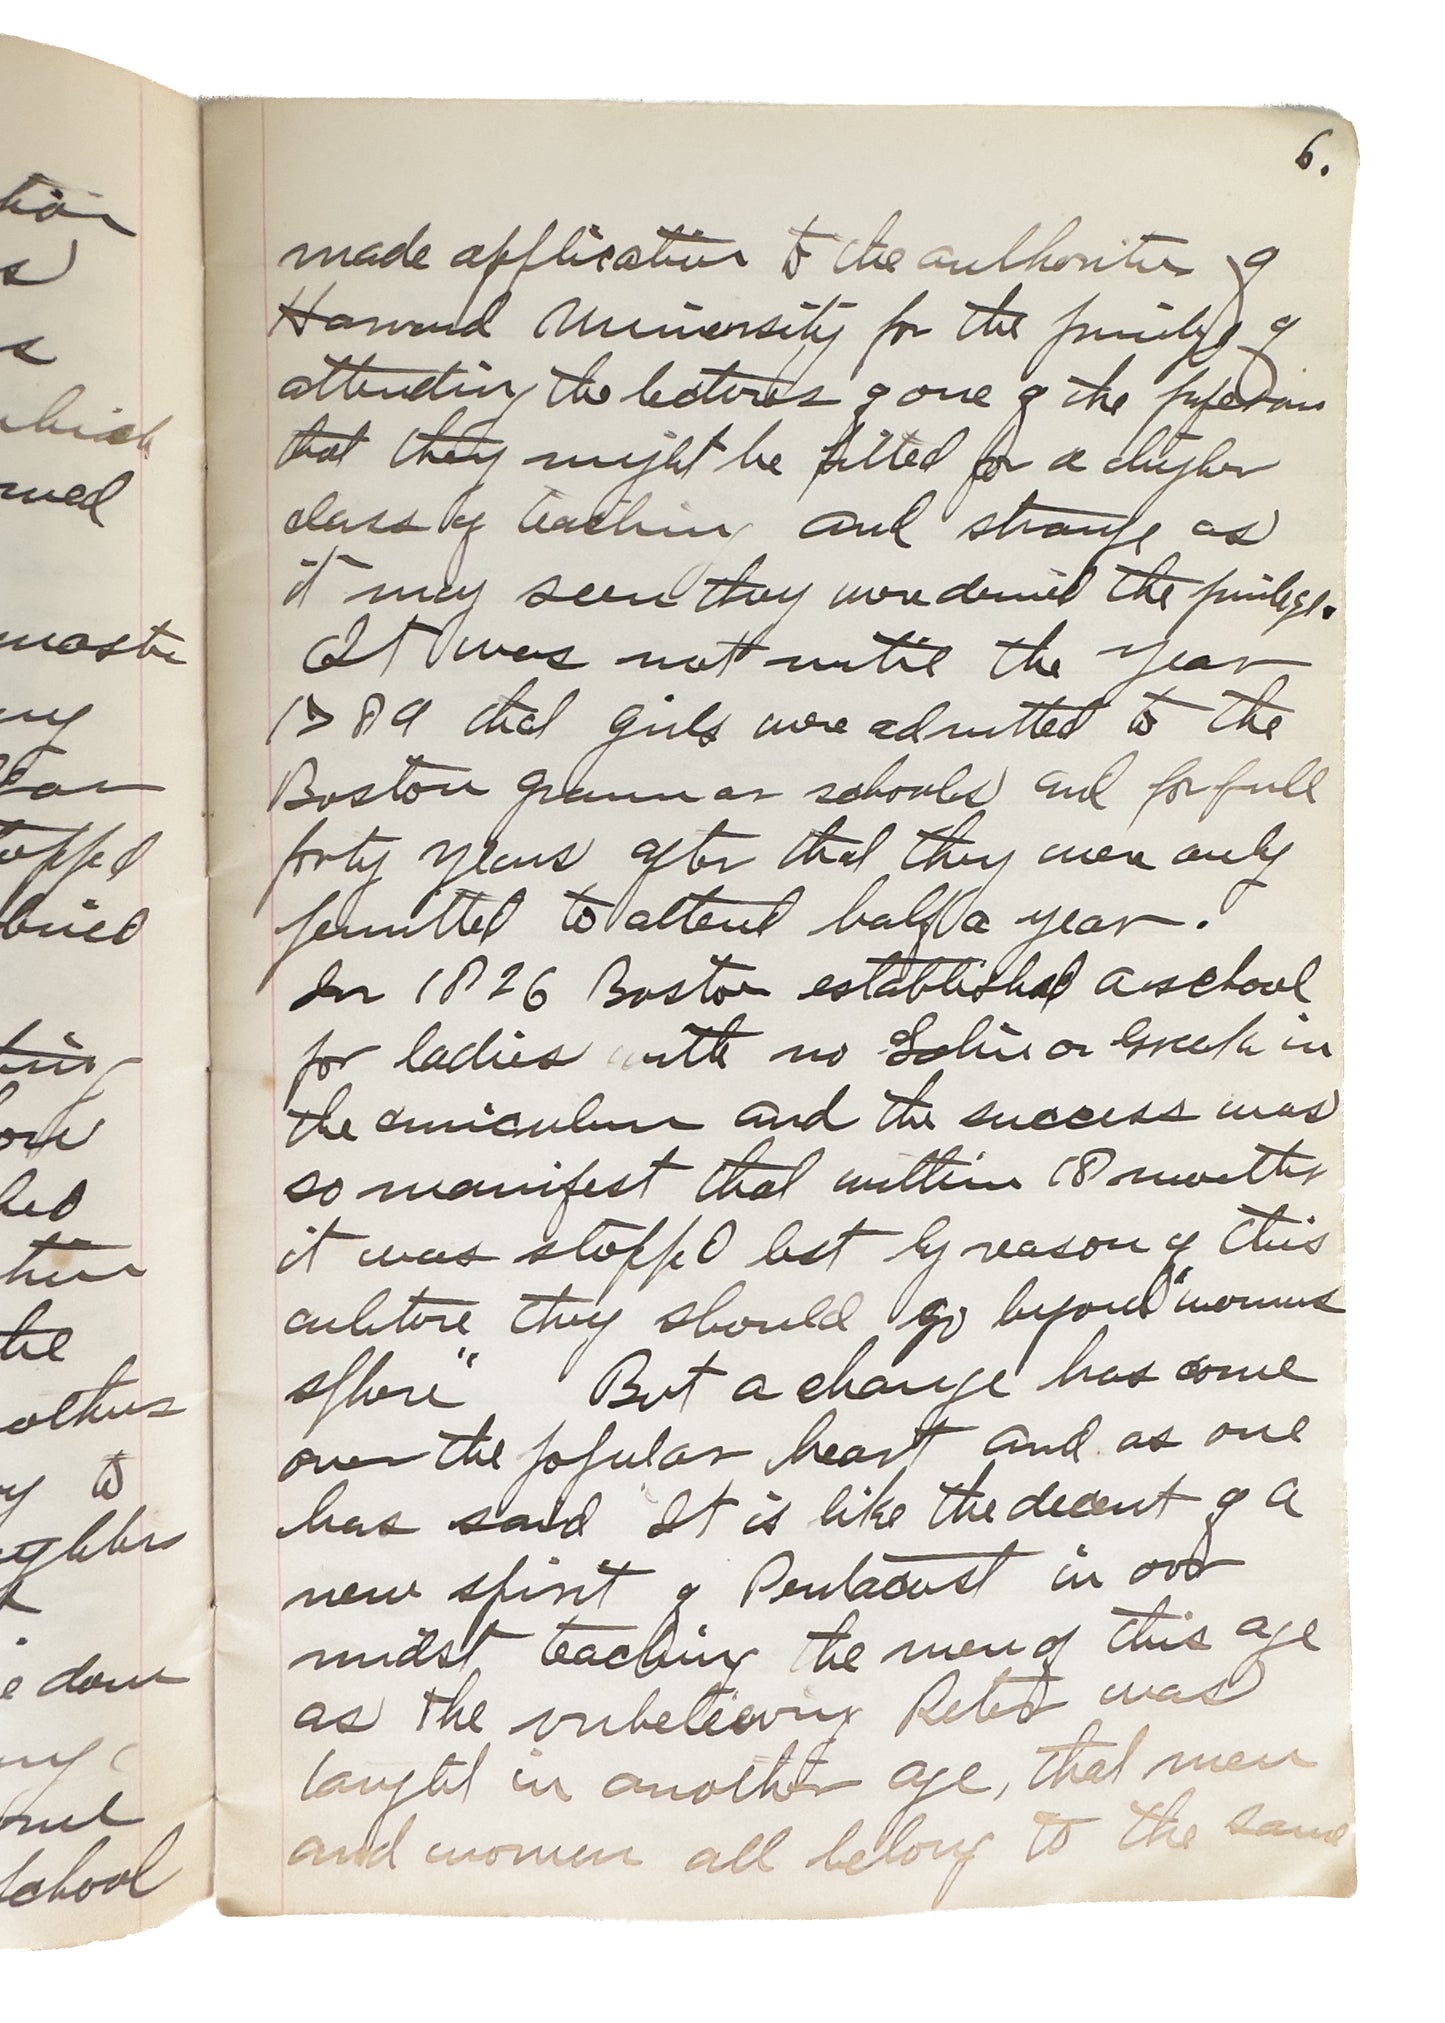 6.
made application to the authorities of
Harvard University for the privilege of
attending the lectures of one of the professors
that they might be fitted for a higher
class of teaching and strange as
it may seem they were denied the privilege.
It was not until the year
1789 that girls were admitted to the
Boston grammar schools and for full
forty years after that they were only
permitted to attend half a year.
In 1826 Boston established a school
for ladies with no Latin or Greek in
the curriculum and the success was
so manifest that within 18 months
it was stopped lest by reason of this
culture they should go beyond "womans
sphere" But a change has come
over the popular heart and as one
has said "It is like the decent of a
new spirit of Pentacost in our
midst teaching the men of this age
as the unbelieving Peter was
taught in another age, that men
and women all belong to the same
which
to
others
school